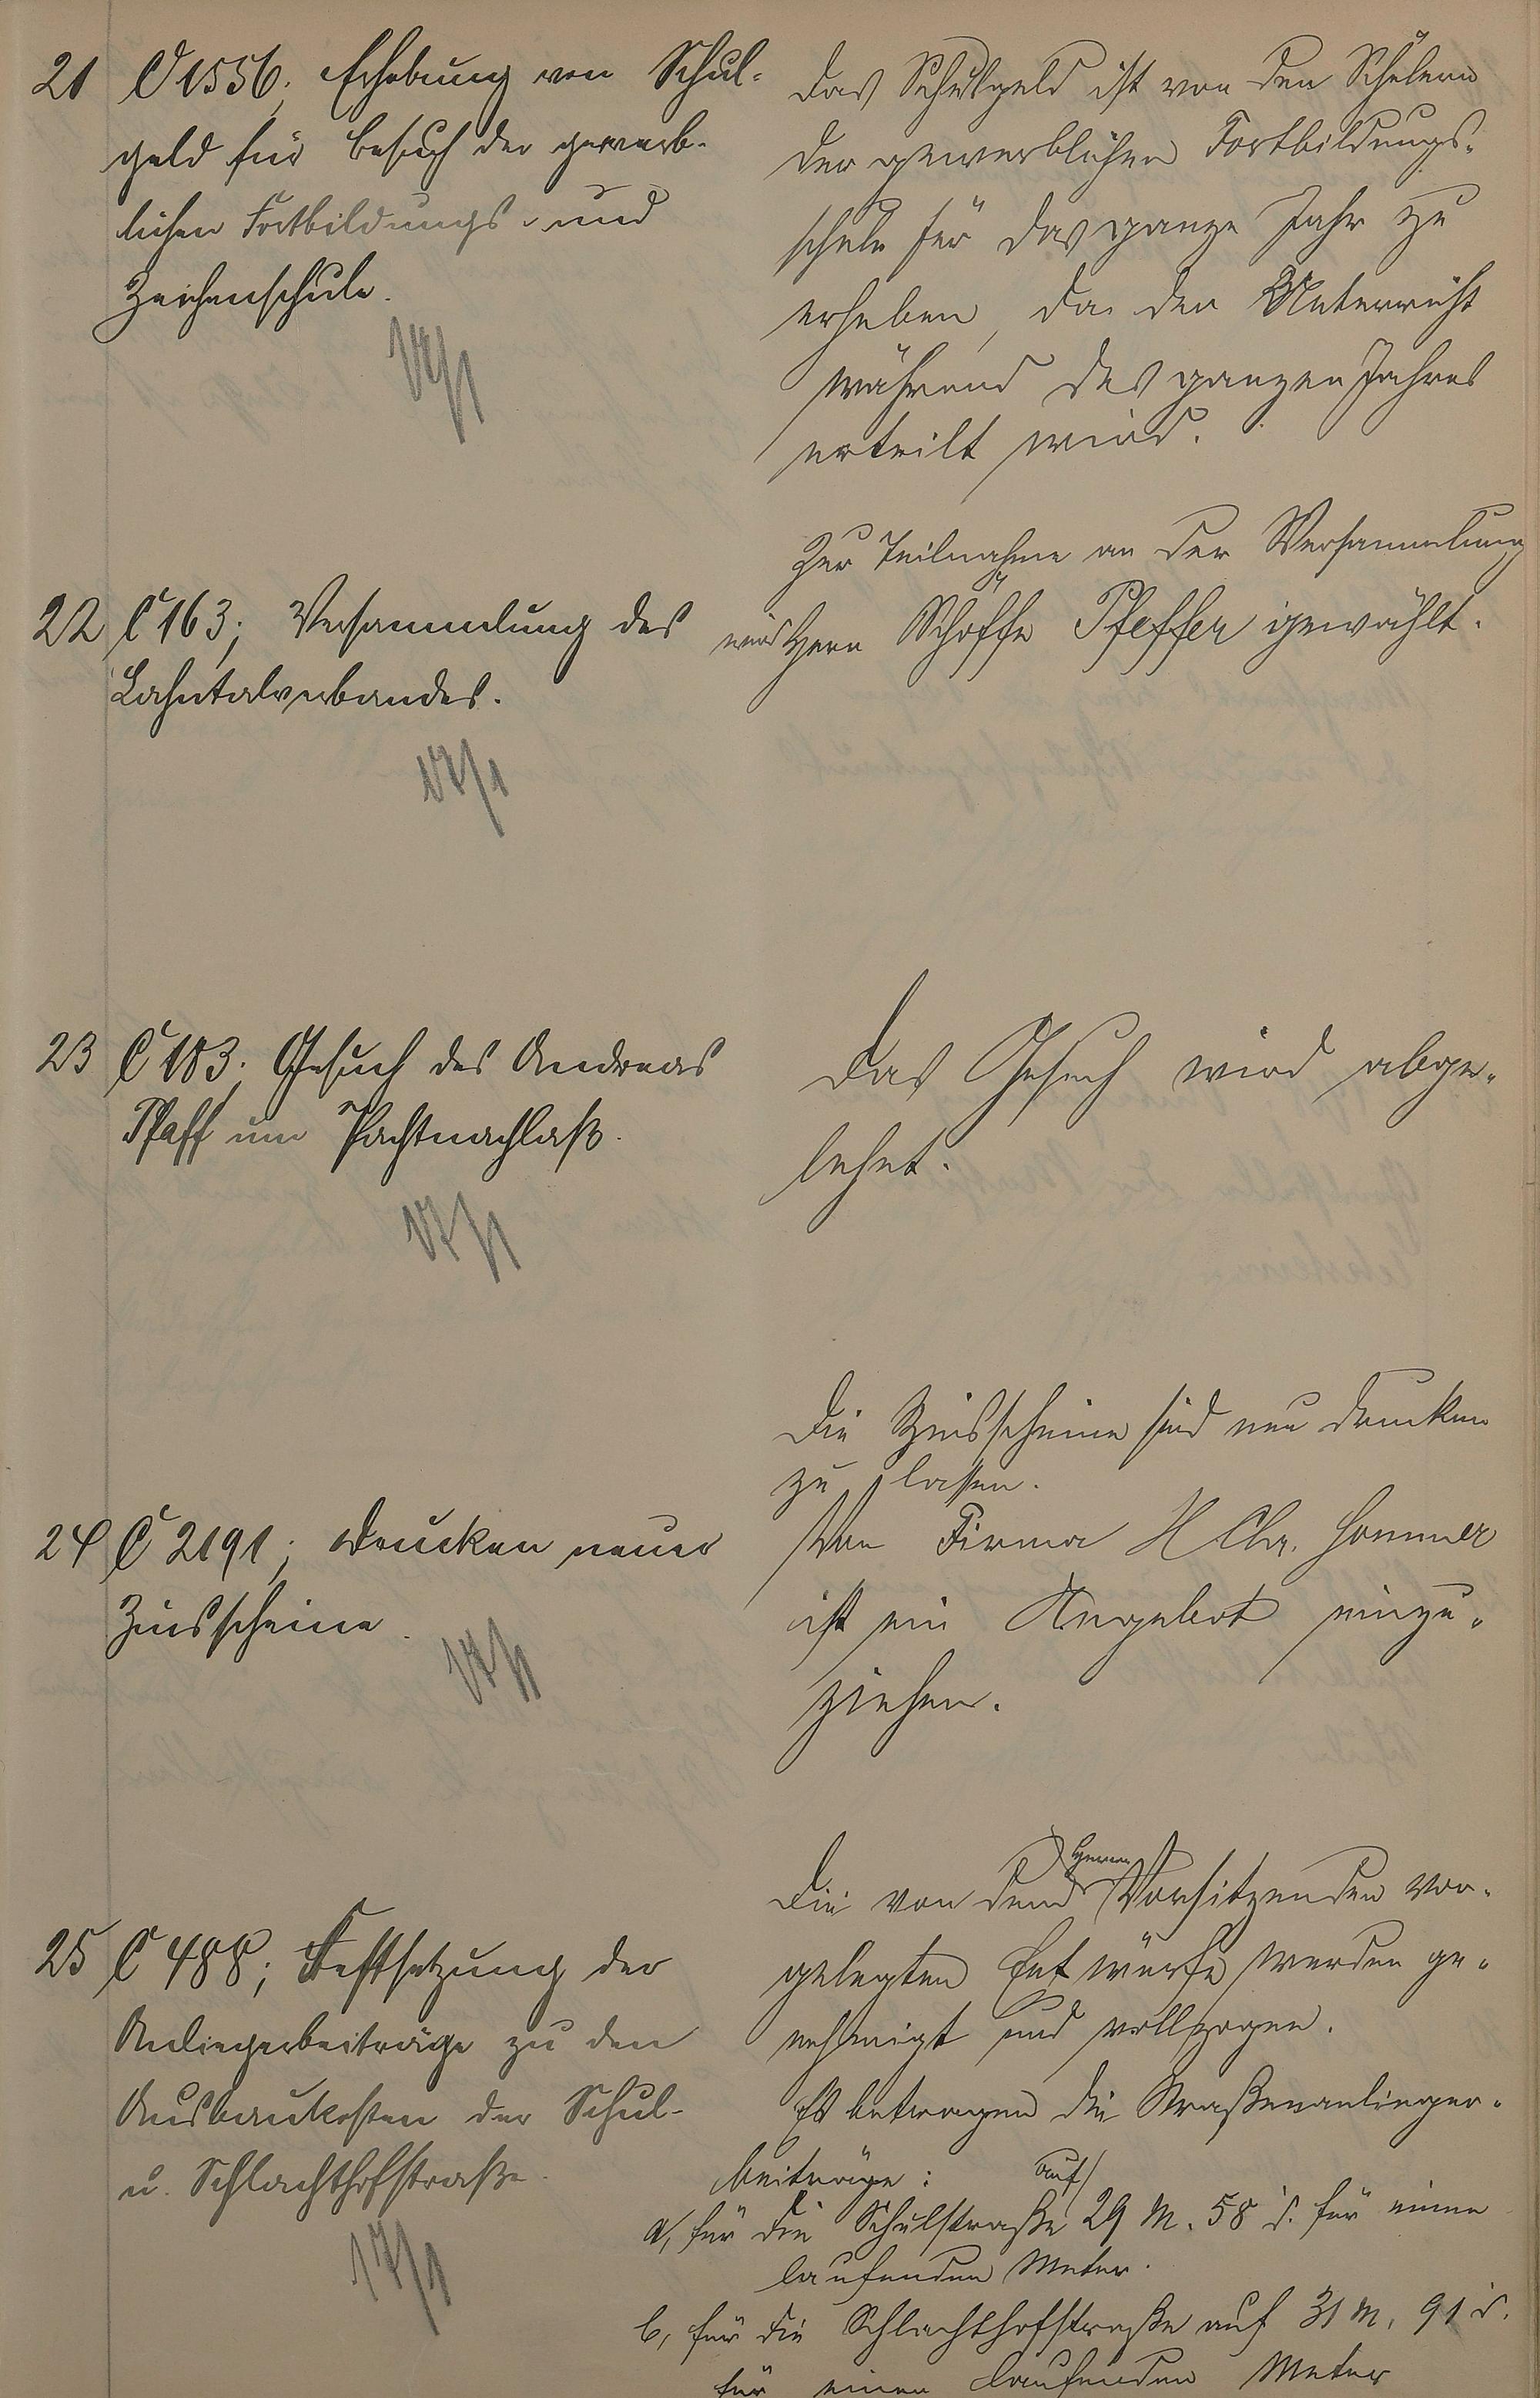 21 C 1556; Erhebung von Schul-
geld für Besuch der gewerb-
lichen Fortbildungs- und
Zeichenschule.
17/1
Das Schulgeld ist von den Schülern
der gewerblichen Fortbildungs-
schule für das ganze Jahr zu
erheben, da der Unterricht
während des ganzen Jahres
erteilt wird.
22 C 163; Versammlung des
Lahntalverbandes.
17/1
Zur Teilnahme an der Versammlung
wird Herr Schöffe Pfeffer gewählt.
23 C 183; Gesuch des Andreas
Pfaff um Pachtnachlaß.
17/1
Das Gesuch wird abge-
lehnt.
24 C 2191; Drucken neuer
Zinsscheine.
17/1
Die Zinsscheine sind neu drucken
zu lassen.
Von Firma H Chr. Sommer
ist ein Angebot einzu-
ziehen.
25 C 488; Festsetzung der
Anliegerbeiträge zu den
Ausbaukosten der Schul-
u. Schlachthofstraße.
17/1
Die von dem Herrn Vorsitzenden vor-
gelegten Entwürfe werden ge-
nehmigt und vollzogen.
Es betragen die Straßenanlieger-
beiträge:
a, für die Schulstraße auf 29 M. 58 d. für einen
laufenden Meter.
b, für die Schlachthofstraße auf 31 M. 91 d.
für einen laufenden Meter